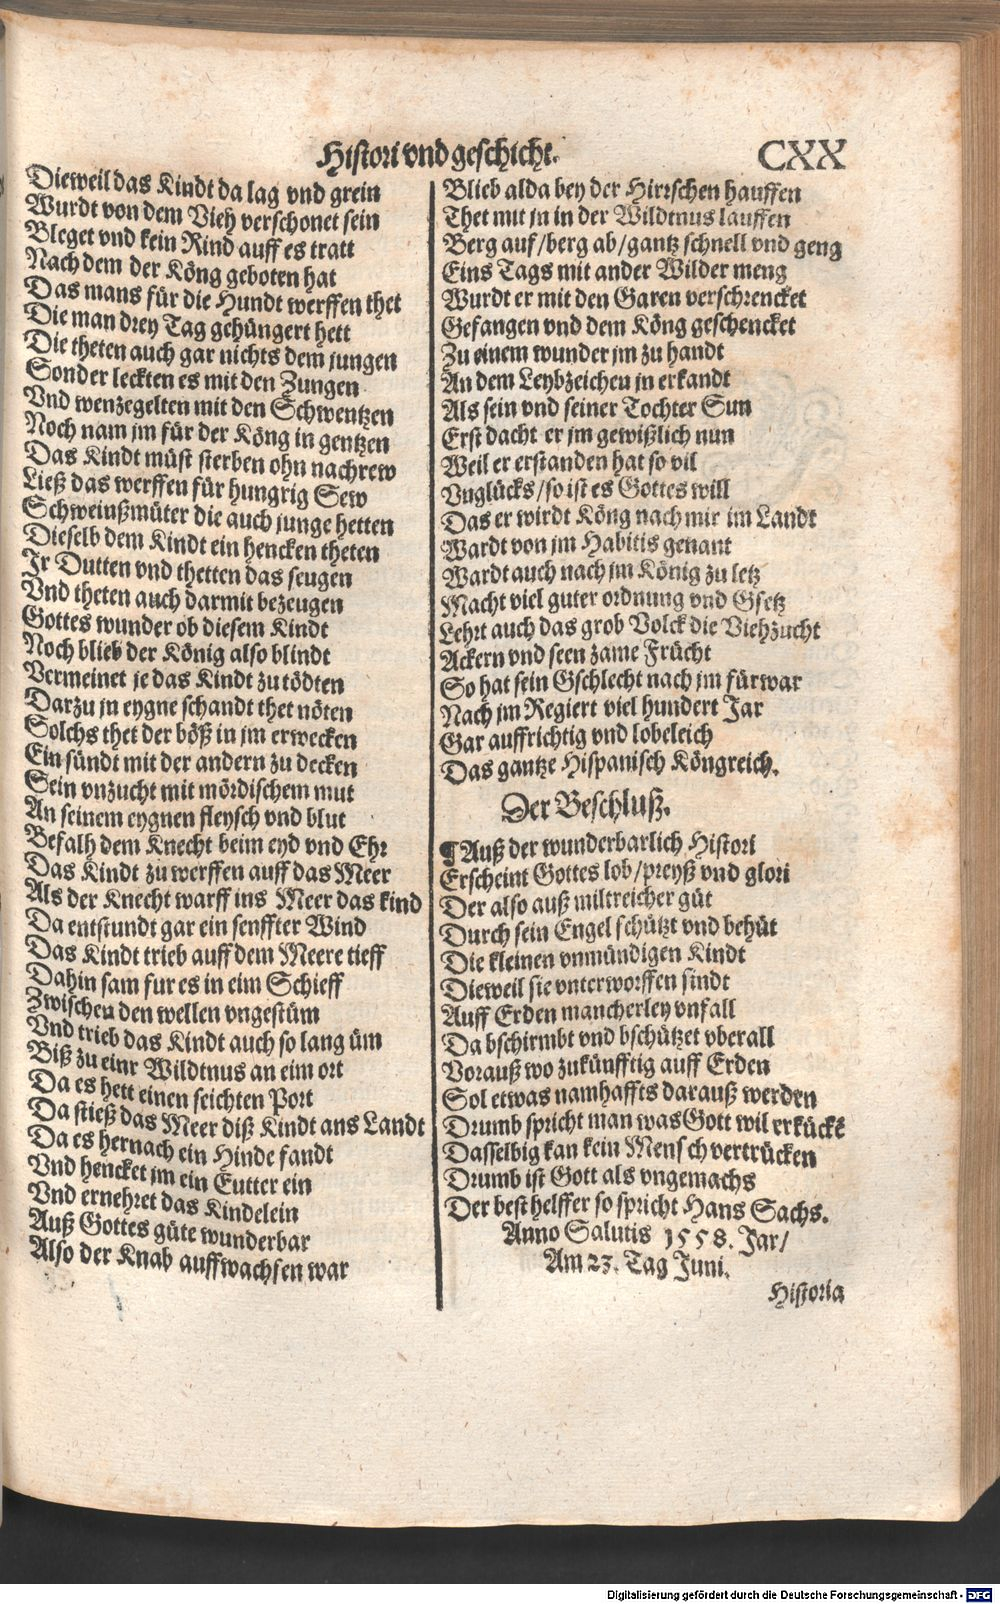 Histori vnd geschicht.
CXX
Dieweil das Kindt da lag vnd grein
Wurdt von dem Vieh verschonet sein
Bleget vnd kein Rind auff es tratt
Nach dem der Köng geboten hat
Das mans für die Hundt werffen thet
Die man drey Tag gehüngert hett
Die theten auch gar nichts dem jungen
Sonder leckten es mit den Zungen
Vnd wenzegelten mit den Schwentzen
Noch nam jm für der Köng in gentzen
Das Kindt müst sterben ohn nachrew
Ließ das werffen für hungrig Sew
Schweinßmüter die auch junge hetten
Dieselb dem Kindt ein hencken theten
Jr Dutten vnd thetten das seugen
Vnd theten auch darmit bezeugen
Gottes wunder ob diesem Kindt
Noch blieb der König also blindt
Vermeinet je das Kindt zu tödten
Darzu jn eygne schandt thet nöten
Solchs thet der böß in jm erwecken
Ein sündt mit der andern zu decken
Sein vnzucht mit mördischem mut
An seinem eygnen fleysch vnd blut
Befalh dem Knecht beim eyd vnd Ehr
Das Kindt zu werffen auff das Meer
Als der Knecht warff ins Meer das kind
Da entstundt gar ein senffter Wind
Das Kindt trieb auff dem Meere tieff
Dahin sam fur es in eim Schieff
Zwischen den wellen vngestüm
Vnd trieb das Kindt auch so lang üm
Biß zu einr Wildtnus an eim ort
Da es hett einen seichten Port
Da stieß das Meer diß Kindt ans Landt
Da es hernach ein Hinde fandt
Vnd hencket jm ein Eutter ein
Vnd ernehret das Kindelein
Auß Gottes güte wunderbar
Also der Knab auffwachsen war
Blieb alda bey der Hirrschen hauffen
Thet mit jn in der Wildtnus lauffen
Berg auf/berg ab/gantz schnell vnd geng
Eins Tags mit ander Wilder meng
Wurdt er mit den Garen verschrencket
Gefangen vnd dem Köng geschencket
Zu einem wunder jm zu handt
An dem Leybzeichen jn erkandt
Als sein vnd seiner Tochter Sun
Erst dacht er jm gewißlich nun
Weil er erstanden hat so vil
Vnglücks/so ist es Gottes will
Das er wirdt Köng nach mir im Landt
Wardt von jm Habitis genant
Wardt auch nach jm König zu letz
Macht viel guter ordnung vnd Gsetz
Lehrt auch das grob Volck die Viehzucht
Ackern vnd seen zame Frücht
So hat sein Gschlecht nach jm fürwar
Nach jm Regiert viel hundert Jar
Gar auffrichtig vnd lobeleich
Das gantze Hispanisch Köngreich.
Der Beschluß.
¶ Auß der wunderbarlich Histori
Erscheint Gottes lob/preyß vnd glori
Der also auß miltreicher güt
Durch sein Engel schützt vnd behüt
Die kleinen vnmündigen Kindt
Dieweil sie vnterworffen sindt
Auff Erden mancherley vnfall
Da bschirmbt vnd bschützet vberall
Vorauß wo zukünfftig auff Erden
Sol etwas namhaffts darauß werden
Drumb spricht man was Gott wil erkückē
Dasselbig kan kein Mensch vertrücken
Drumb ist Gott als vngemachs
Der best helffer so spricht Hans Sachs.
Anno Salutis 1558. Jar/
Am 23. Tag Juni.
Historia
Digitalisierung gefördert durch die Deutsche Forschungsgemeinschaft - DFG